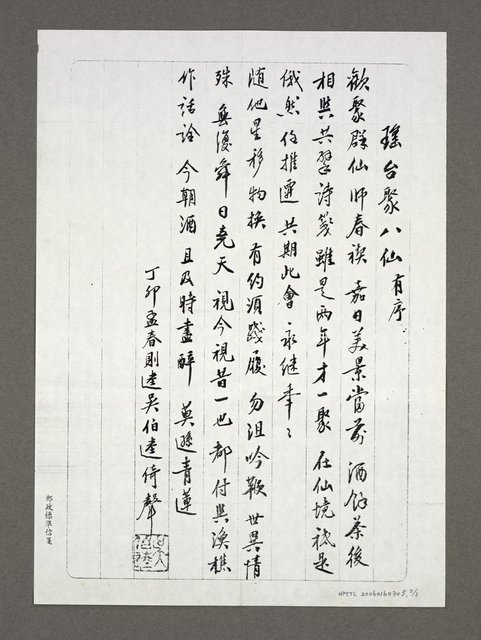 瑤台聚八仙 有序
歡聚群仙師春禊 嘉日美景當前 酒餘茶後
相與共擘詩箋 雖是兩年才一聚 在仙境祗是
俄然 任推遷 共期此會 永繼年〻
随他星移物換 有約須踐履 勿沮吟鞭 世異情
殊 無復舜日堯天 視今視昔一也 都付與漁樵
作話詮 今朝酒 且及時盡醉 莫遜青蓮
丁卯孟春則逵吳伯逵倚聲
郵政標準信箋
NMTL 20060160305, 2/2